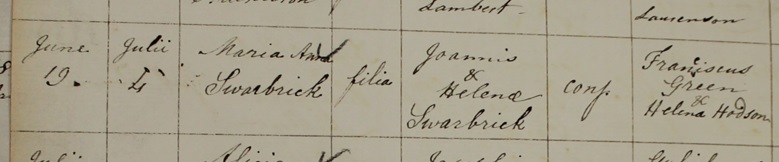 Lambert
Laurenson
June
19.
Julii
4
Maria Anna
Swarbrick
filia
Joannis
&
Helenæ
Swarbrick
conj.
Franciscus
Green
&
Helena Hodson